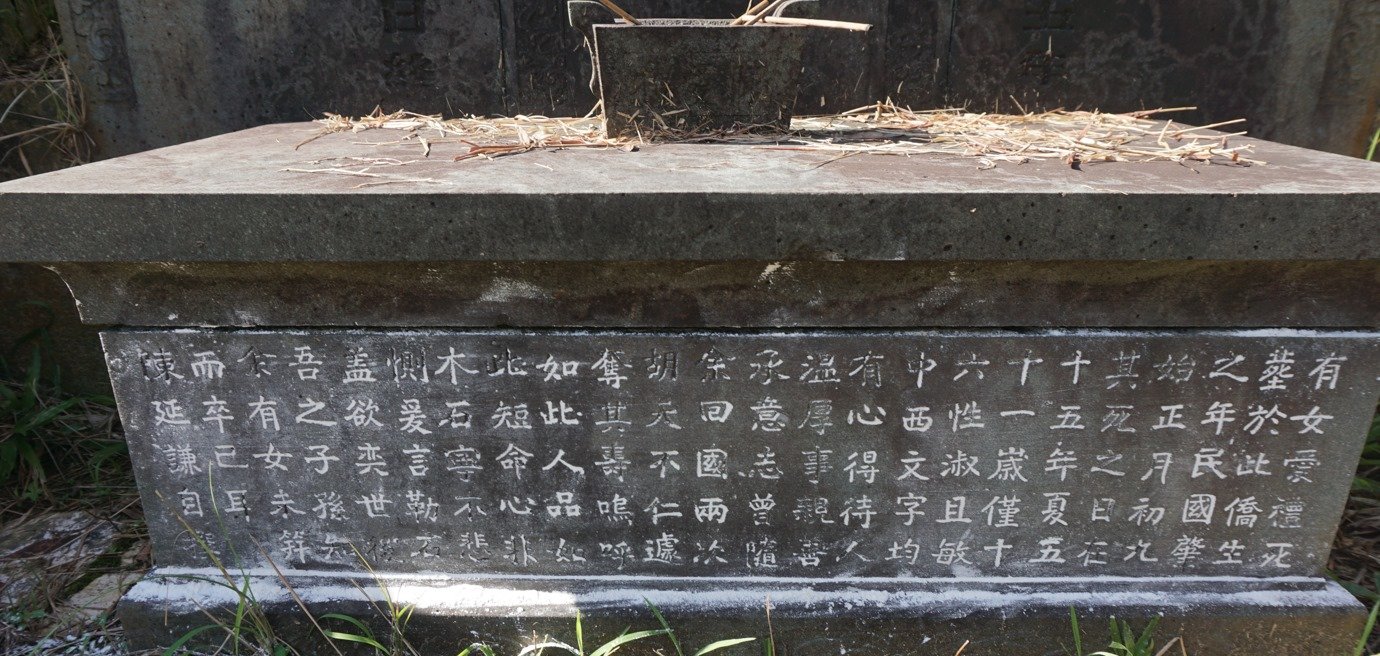 有女愛禮死
塟於此僑生
之年民國肇
始正月初九
其死之日在
十五年夏五
十一嵗僅十
六性淑且敏
中西文字均
有心得待人
温厚事親善
承意志曾隨
余回國兩次
胡天不仁遽
奪其壽嗚呼
如此人品如
此短命心非
木石寧不悲
惻爰言勒石
蓋欲奕世後
吾之子孫知
余有女未笄
而卒已耳
陳延謙自撰